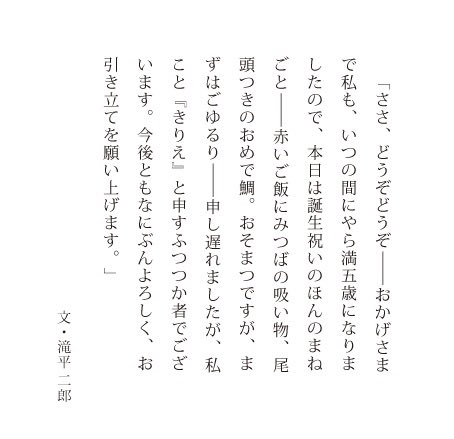 「ささ、どうぞどうぞ――おかげさま
で私も、いつの間にやら満五歳になりま
したので、本日は誕生祝いのほんのまね
ごと――赤いご飯にみつばの吸い物、尾
頭つきのおめで鯛。おそまつですが、ま
ずはごゆるり――申し遅れましたが、私
こと『きりえ』と申すふつつか者でござ
います。今後ともなにぶんよろしく、お
引き立てを願い上げます。」
文・滝平二郎